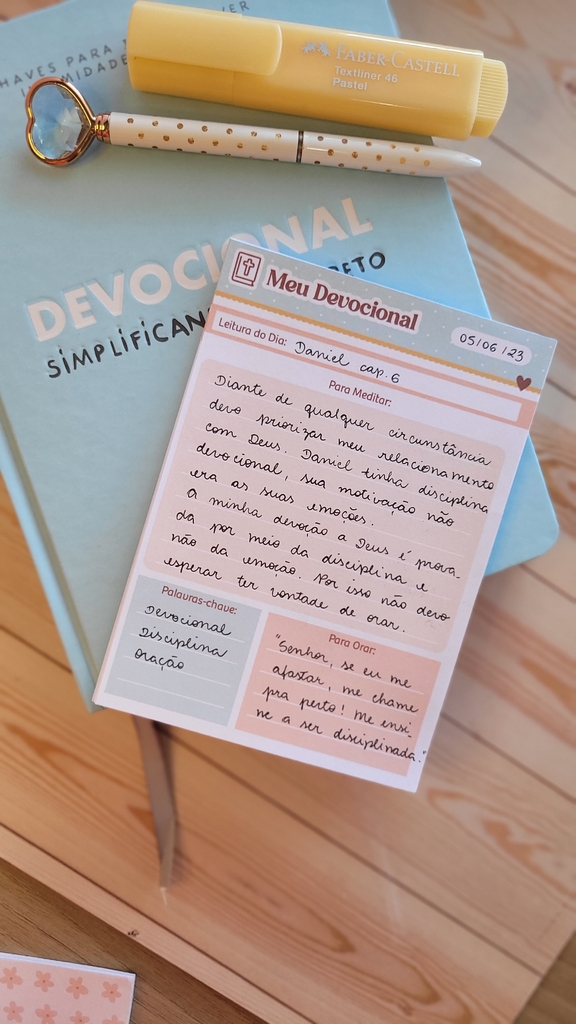 FABER-CASTELL
Textliner 46
Pastel
DEVOCIONAL
SIMPLIFICAN
Meu Devocional
05/06/23
Leitura do Dia: Daniel cap. 6
Para Meditar:
Diante de qualquer circunstância
devo priorizar meu relacionamento
com Deus. Daniel tinha disciplina
devocional, sua motivação não
era as suas emoções.
A minha devoção a Deus é prova-
da por meio da disciplina e
não da emoção. Por isso não devo
esperar ter vontade de orar.
Palavras-chave:
Devocional
Disciplina
Oração
Para Orar:
"Senhor, se eu me
afastar, me chame
pra perto! Me ensi-
ne a ser disciplinada."